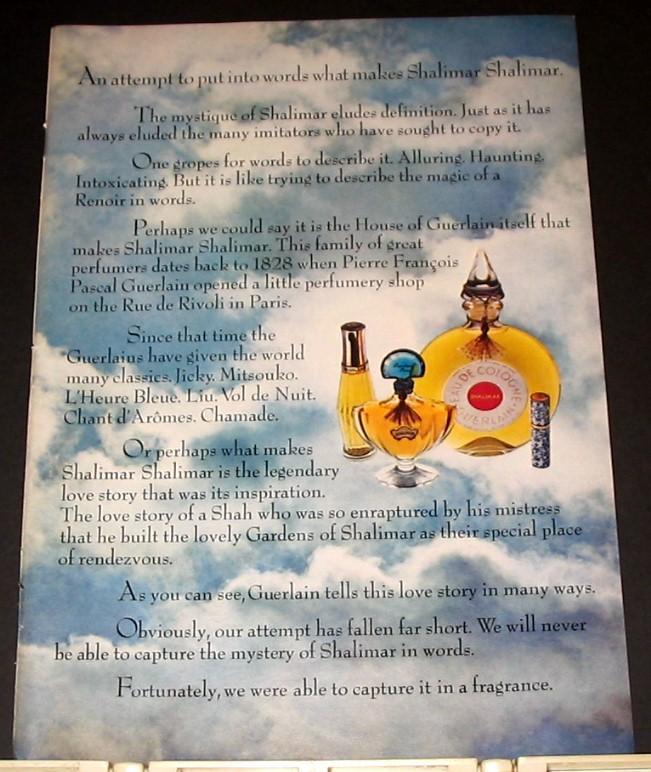 An attempt to put into words what makes Shalimar Shalimar.
The mystique of Shalimar eludes definition. Just as it has
always eluded the many imitators who have sought to copy it.
One gropes for words to describe it. Alluring. Haunting.
Intoxicating. But it is like trying to describe the magic of a
Renoir in words.
Perhaps we could say it is the House of Guerlain itself that
makes Shalimar Shalimar. This family of great
perfumers dates back to 1828 when Pierre François
Pascal Guerlain opened a little perfumery shop
on the Rue de Rivoli in Paris.
Since that time the
Guerlains have given the world
many classics. Jicky. Mitsouko.
L'Heure Bleue. Liu. Vol de Nuit.
Chant d'Arômes. Chamade.
Or perhaps what makes
Shalimar Shalimar is the legendary
love story that was its inspiration.
The love story of a Shah who was so enraptured by his mistress
that he built the lovely Gardens of Shalimar as their special place
of rendezvous.
As you can see, Guerlain tells this love story in many ways.
Obviously, our attempt has fallen far short. We will never
be able to capture the mystery of Shalimar in words.
Fortunately, we were able to capture it in a fragrance.
EAU DE COLOGNE
SHALIMAR
GUERLAIN